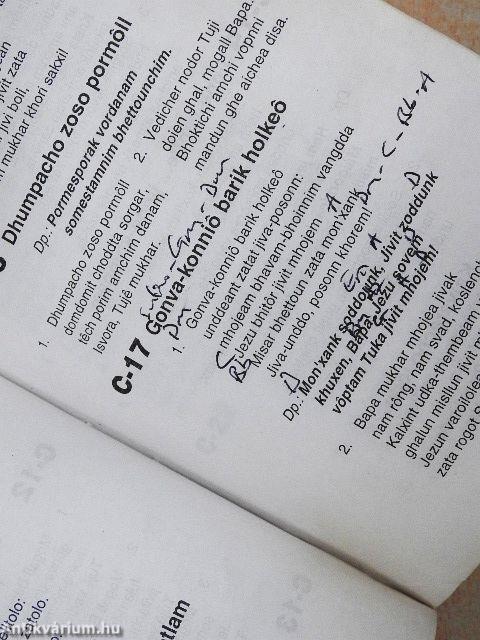 jivi zata
jivi boli,
mukhar khori sakxil
Dhumpacho zoso pormôll
Dp.: Pormesporak vordanam
somestamniim bhettounchim.
1. Dhumpacho zoso pormôll
domdomit choddta sorgar,
têch porim amchim danam,
Isvora, Tujê mukhar.
2. Vedicher nodor Tuji
doien ghal, mogall Bapa.
Bhoktichi amchi vopnni
mandun ghe aichea disa.
C-17 Gonva-konniô barik holkeô
1. Gonva-konniô barik holkeô
unddeant zatat jiva-posonn:
mhojeam bhavam-bhoinnim vangdda
Jezu bhitôr jivit mhojem
Misar bhettoun zata mon'xank
jiva-unddo, posonn khorem!
Dm - C - Bb · A
A
C
Bb
D
D
A
Dp.: Mon'xank soddounk, jivit zoddunk
khuxen, Bapa, Jezu sovem
voptam Tuka jivit mhojem!
2. Bapa mukhar mhojea jivak
nam rông, nam svad,
Kalxint udka-thembeam
ghalun misllun jivit
Jezun varoilolea
zata rogot
tlam
antikvárium.hu